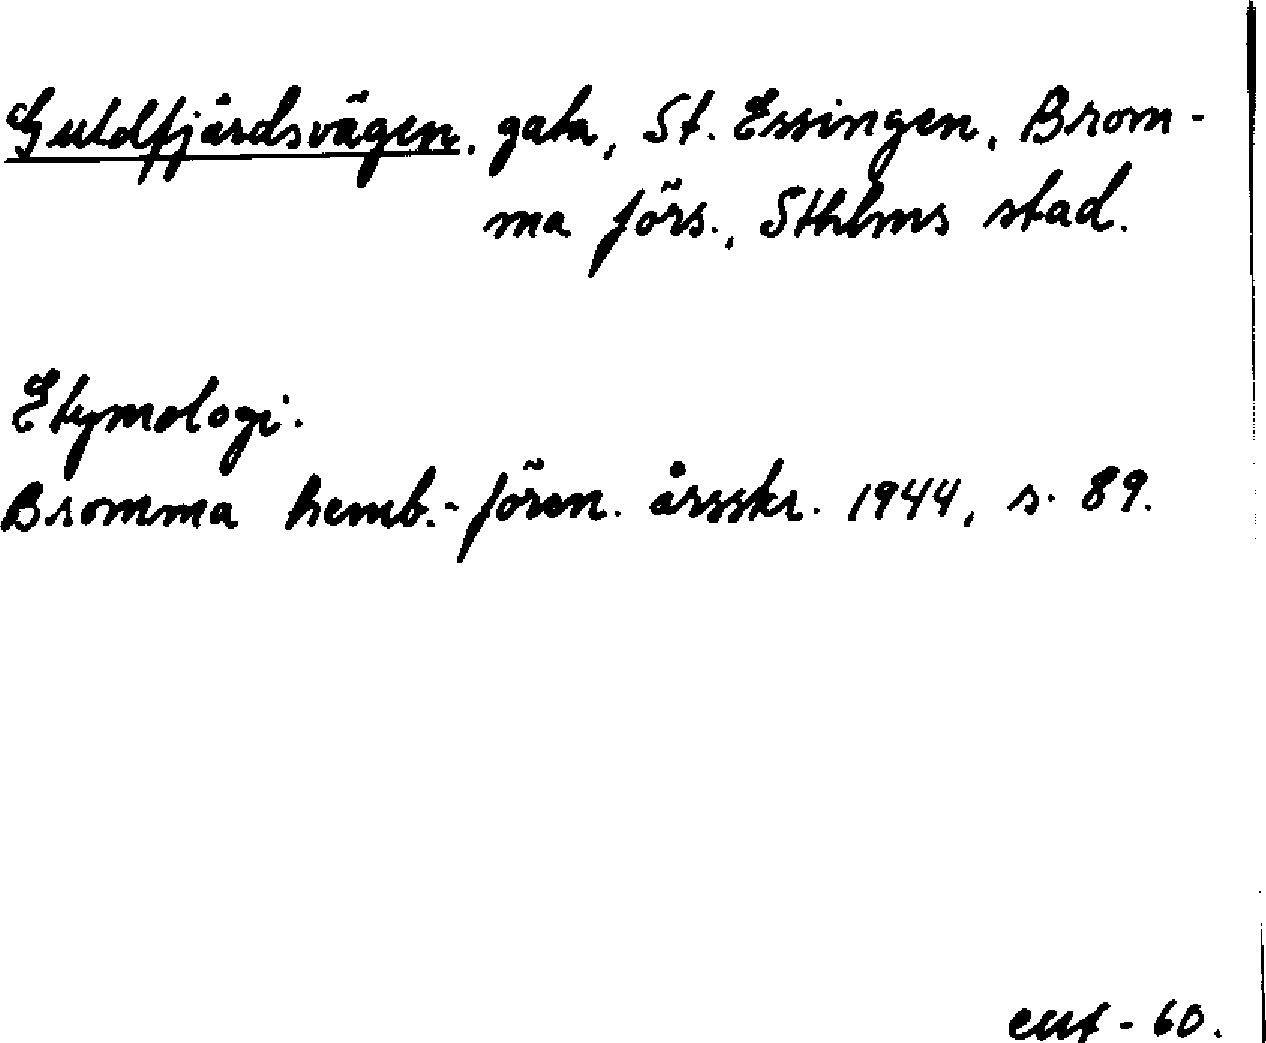 Guldfjärdsvägen, gata, St. Essingen, Brom-
ma förs., Sthlms stad.
Etymologi.
Bromma hemb.-fören. årsskr. 1944, s. 89.
-60.